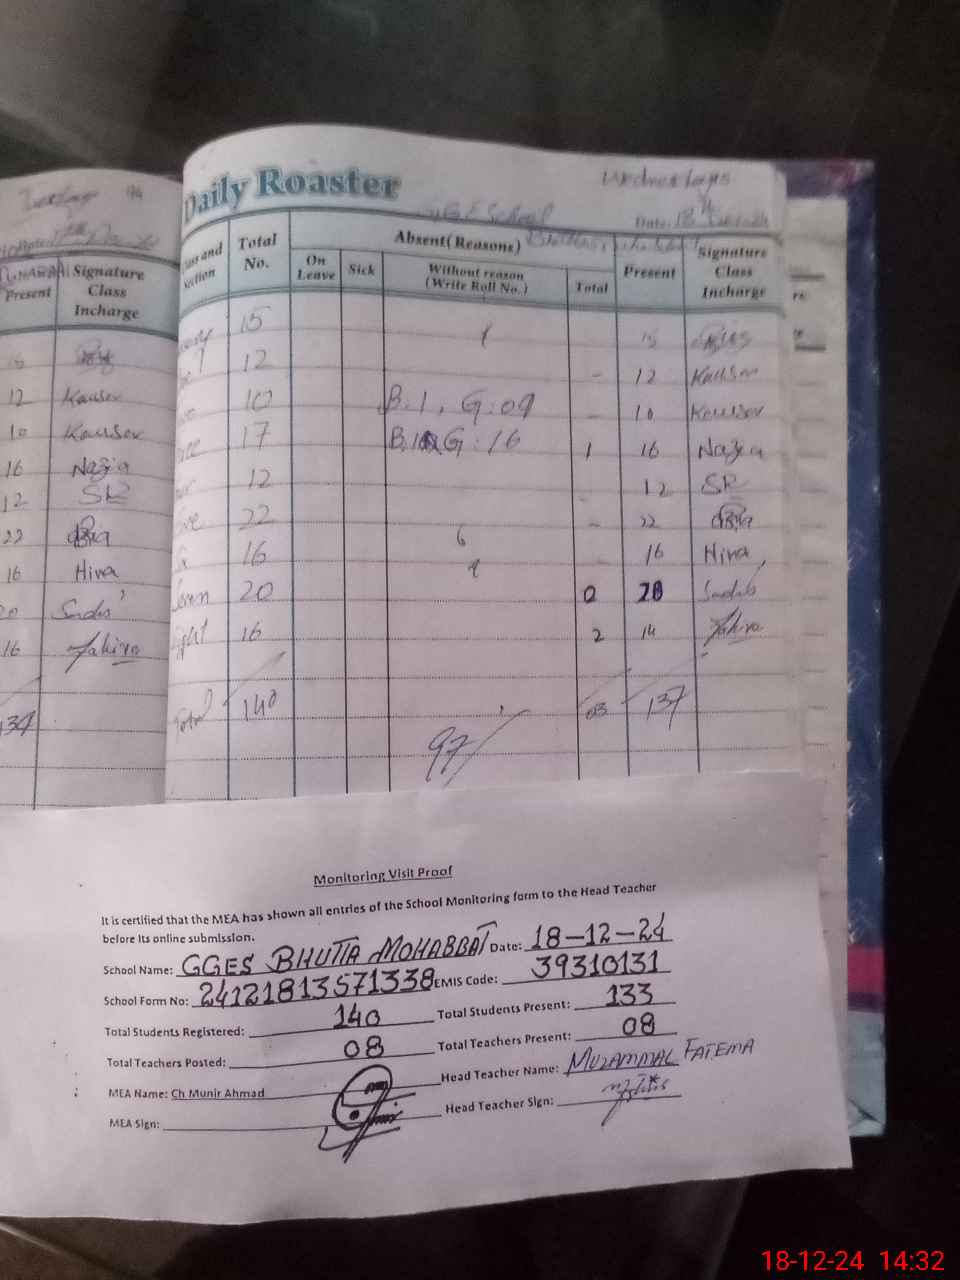 Daily Roaster
Wednesdays
School
Date: 18
Class and Section
Total No.
Absent (Reasons)
On Leave
Sick
Without reason (Write Roll No.)
Total
Present
Signature Class Incharge
15 15
12 - 12 Kausar
10 B:1, G:09 - 10 Kausar
17 B: G:16 1 16 Nazia
12 12 SR
22 - 22
16 6 16 Hira
Seven 20 0 20
Eight 16 2 14
Total 140 03 137
97
Present
Signature Class Incharge
12 Kausar
10 Kausar
16 Nazia
12 SR
22
16 Hira
20
16
Monitoring Visit Proof
It is certified that the MEA has shown all entries of the School Monitoring form to the Head Teacher
before its online submission.
School Name: GGES BHUTTA MOHABBAT Date: 18-12-24
School Form No: 24121813571338 EMIS Code: 39310131
Total Students Registered: 140 Total Students Present: 133
Total Teachers Posted: 08 Total Teachers Present: 08
MEA Name: Ch Munir Ahmad Head Teacher Name: MUZAMMAL FATEMA
MEA Sign: Head Teacher Sign:
18-12-24 14:32